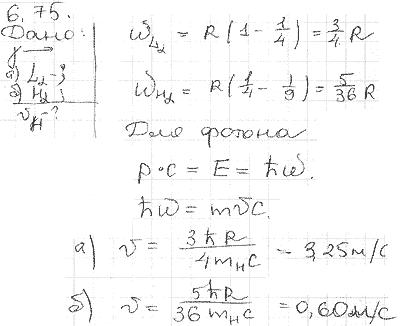 6.75.
Дано:
γ →
а) L₂ - ;
б) H₂ ;
v_H - ?
ω_L₂ = R(1 - 1/4) = 3/4 R
ω_H₂ = R(1/4 - 1/9) = 5/36 R
Для фотона
p·c = E = ħω.
ħω = mvc.
а) v = 3ħR / 4m_Hc - 3,25м/с
б) v = 5ħR / 36m_Hc = 0,60м/с